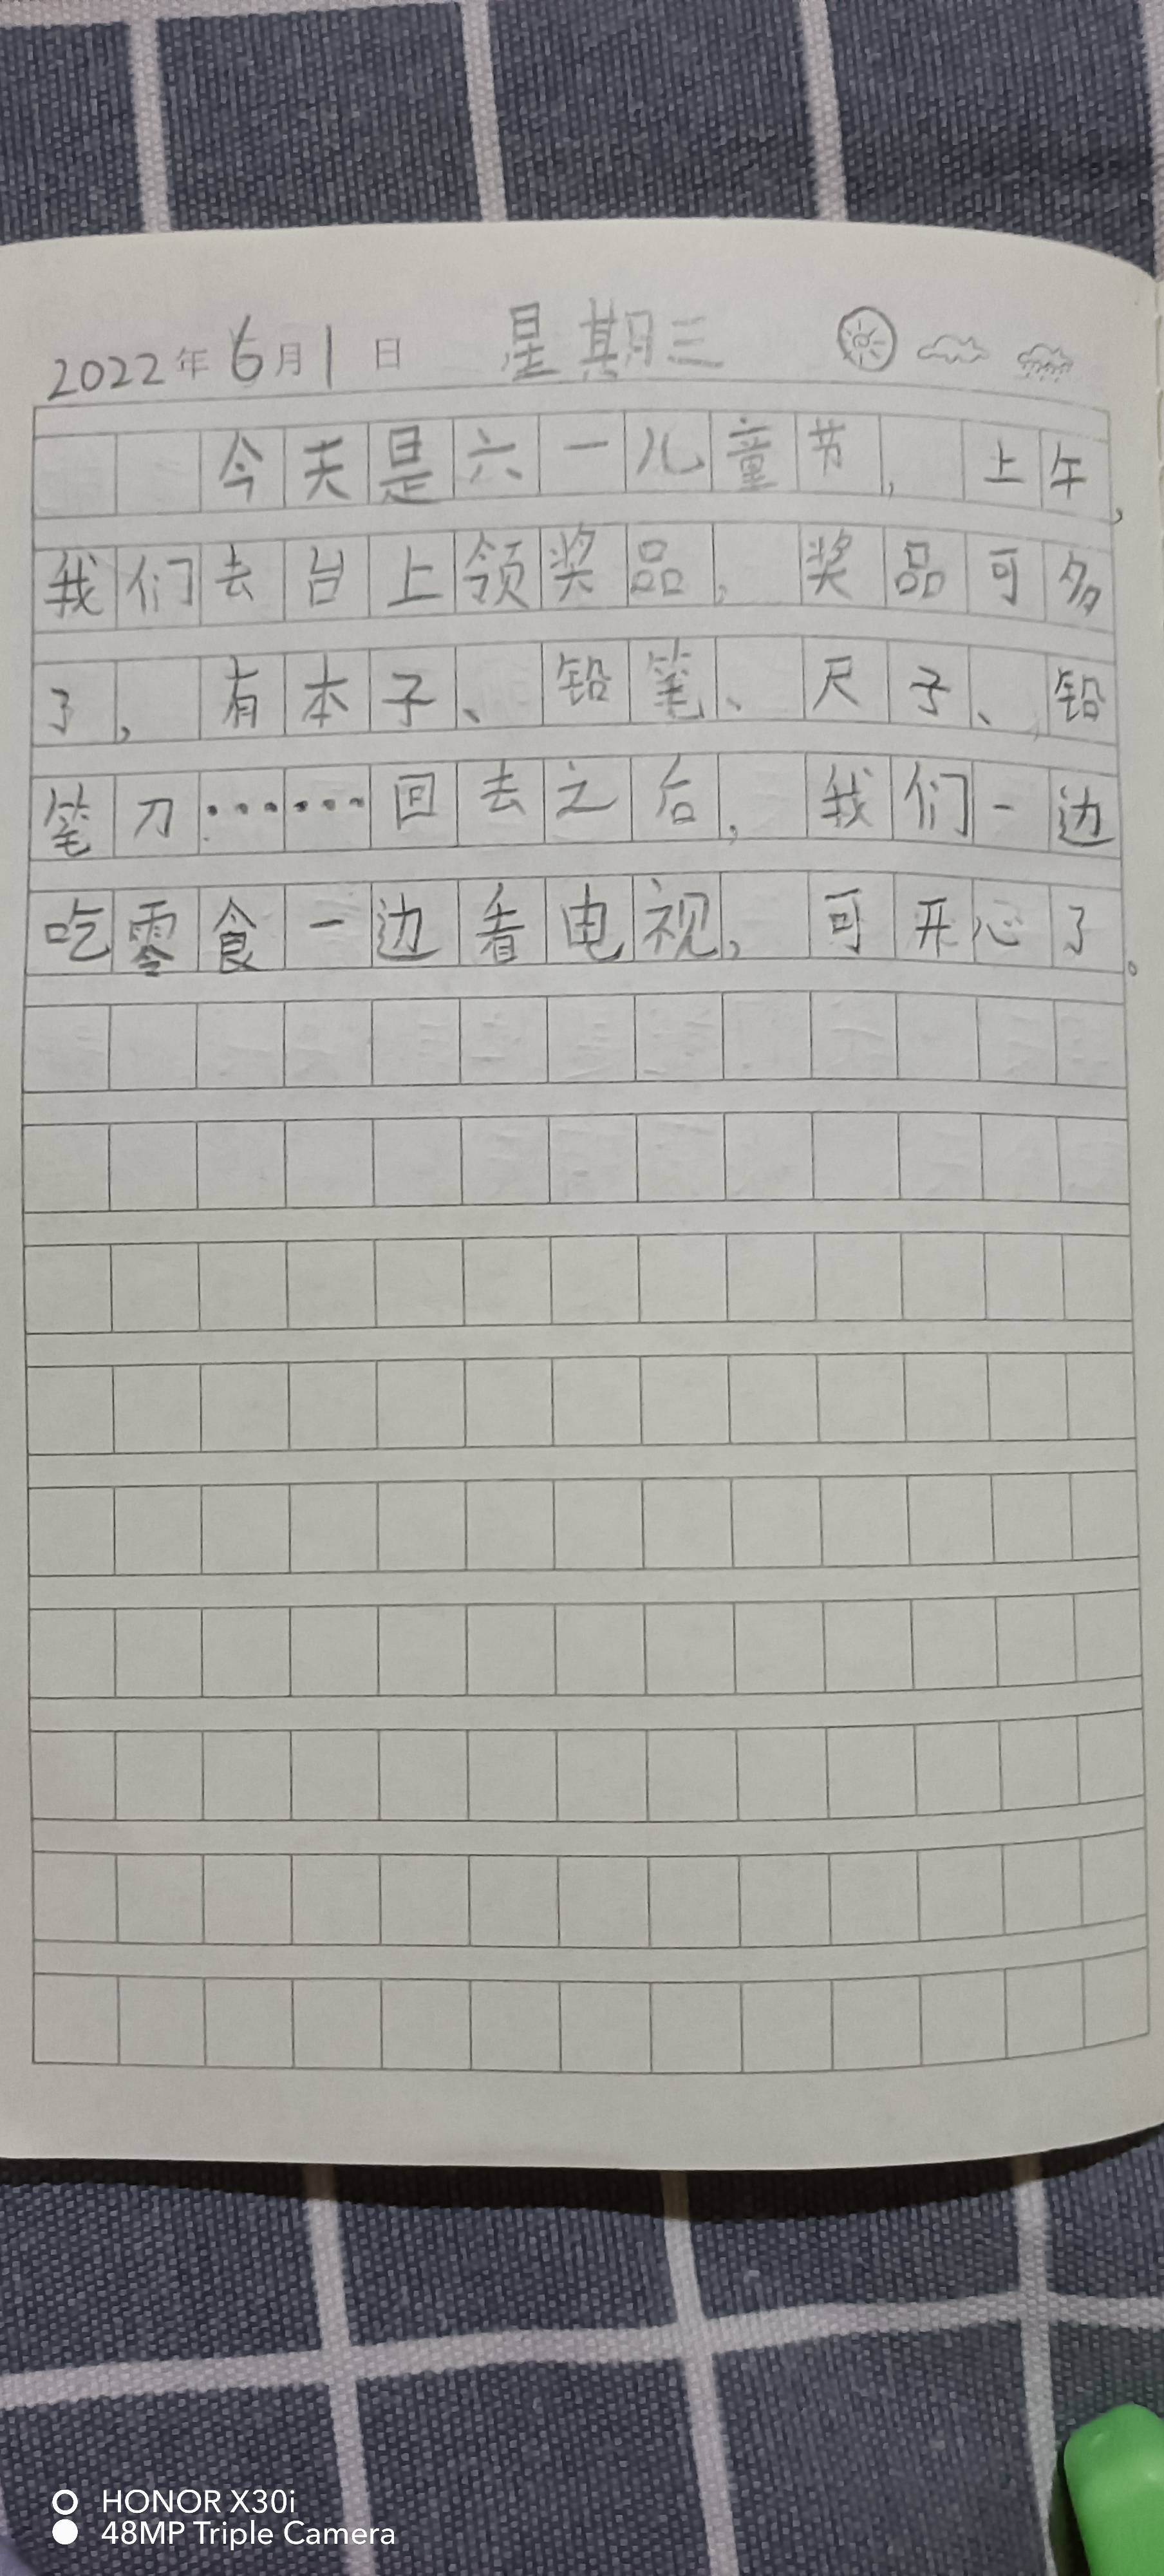 2022年6月1日 星期三
今天是六一儿童节,上午,
我们去台上领奖品,奖品可多
了,有本子、铅笔、尺子、铅
笔刀……回去之后,我们一边
吃零食一边看电视,可开心了。
HONOR X30i
48MP Triple Camera